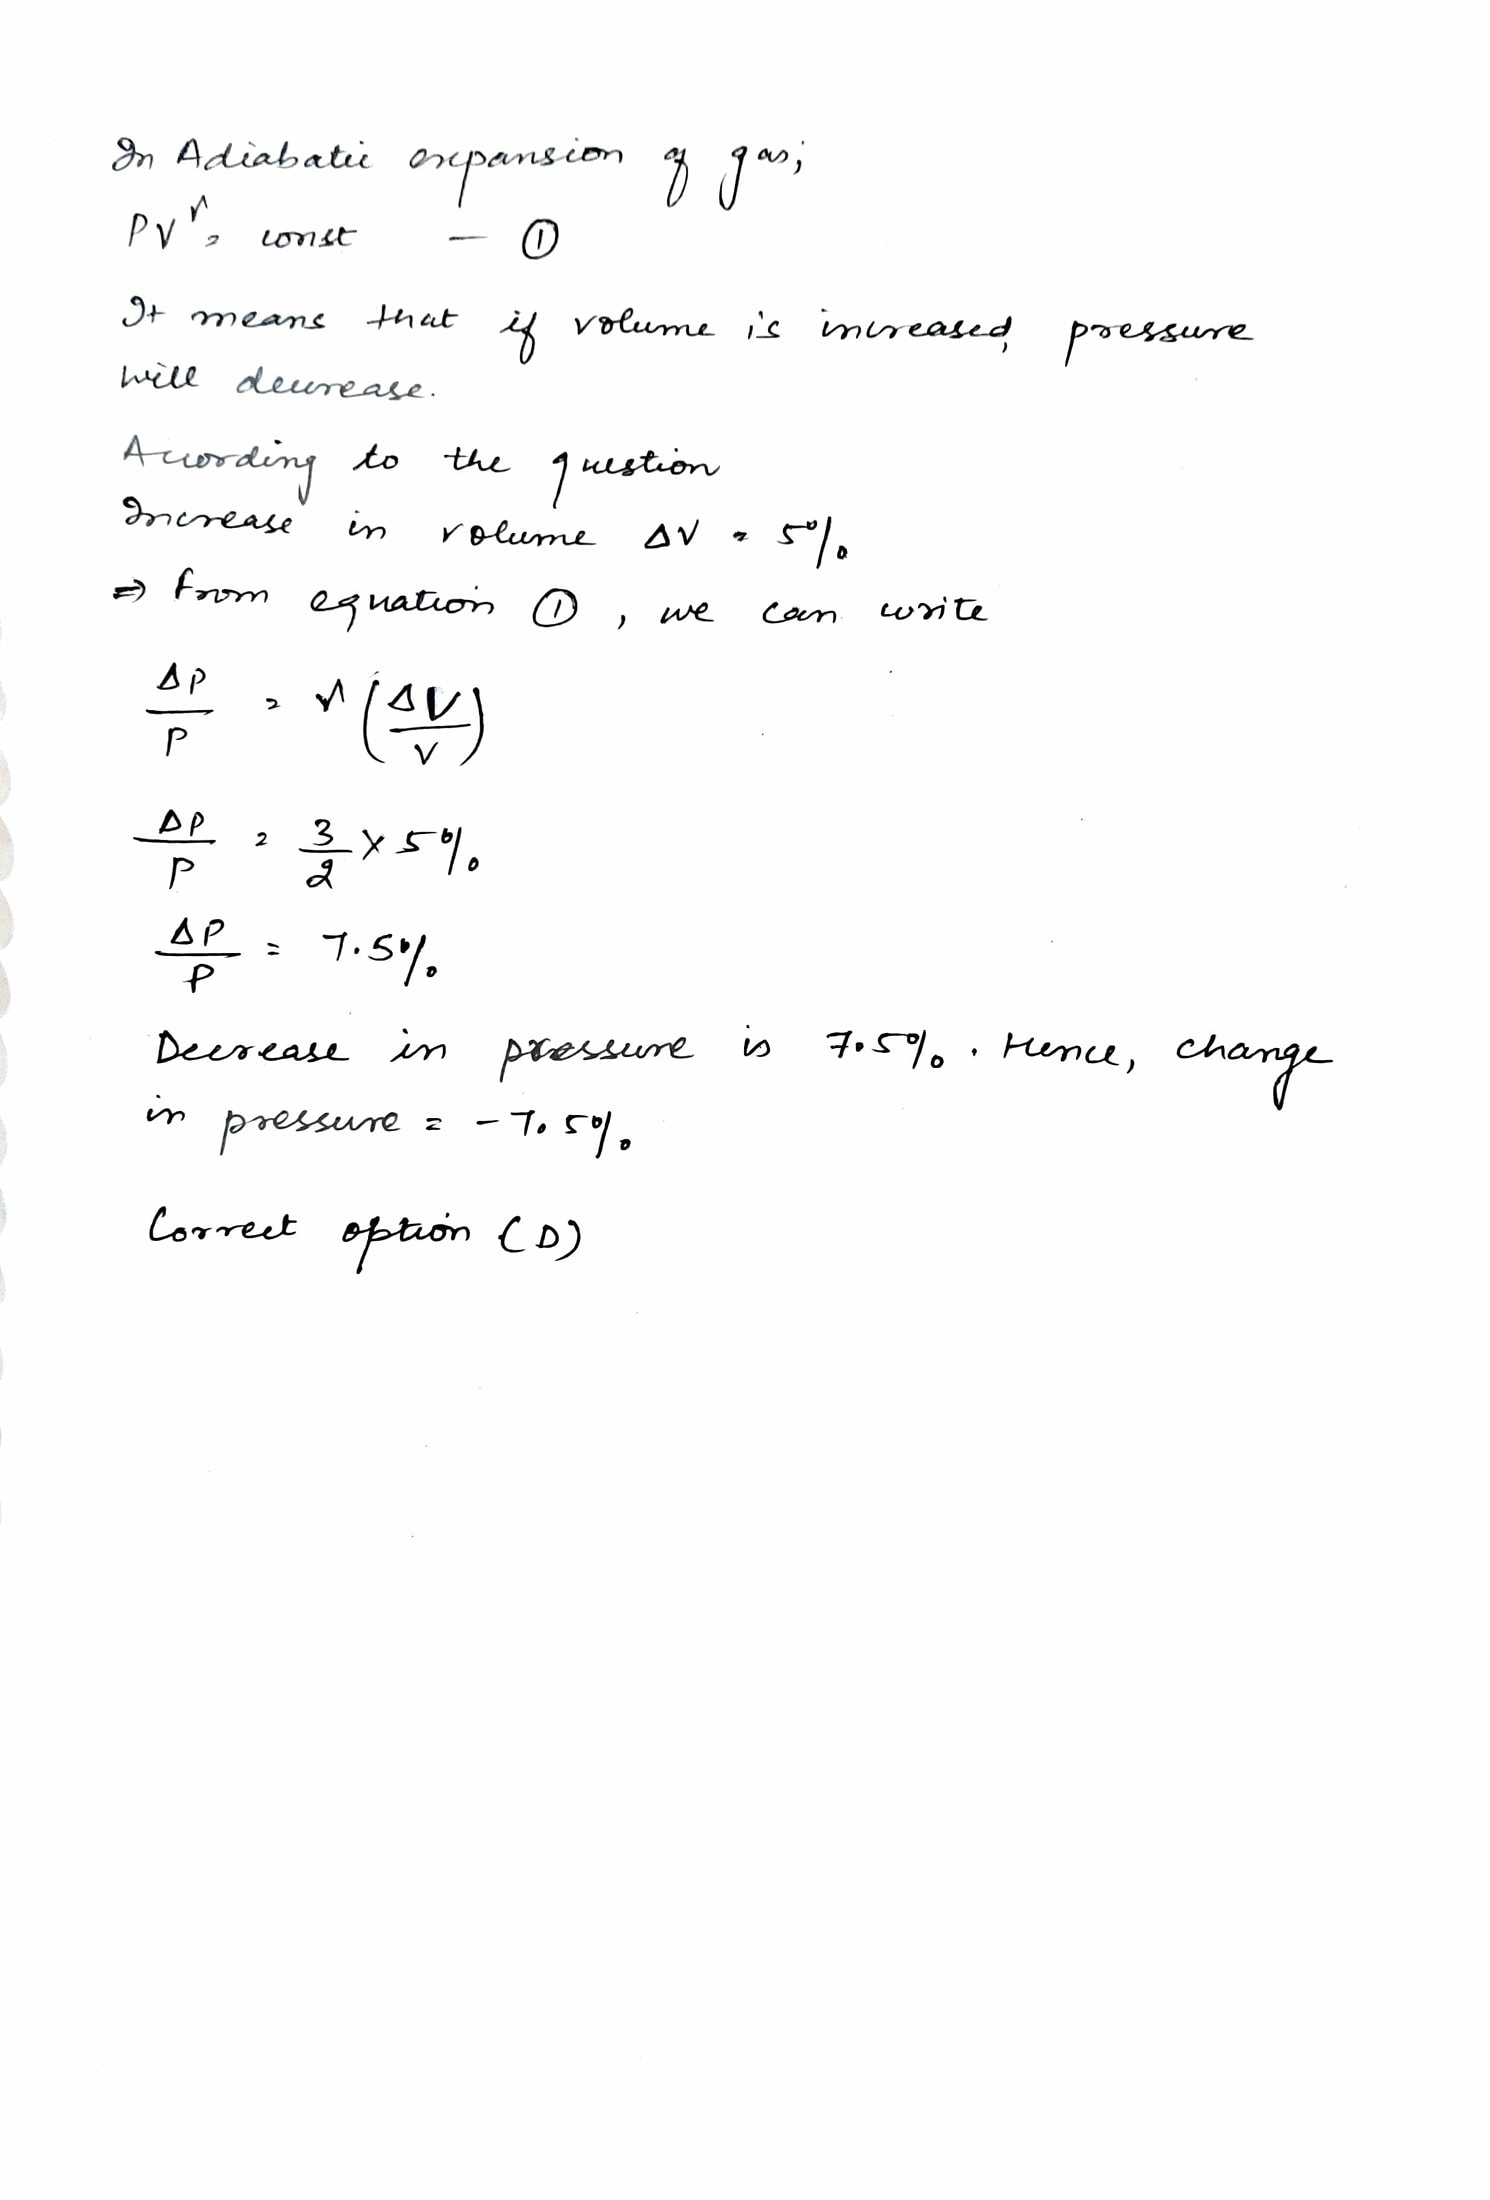 In Adiabatic expansion of gas;
PV^γ = const — ①
It means that if volume is increased, pressure
will decrease.
According to the question
Increase in volume ΔV = 5%
⇒ from equation ①, we can write
ΔP/P = γ(ΔV/V)
ΔP/P = 3/2 × 5%
ΔP/P = 7.5%
Decrease in pressure is 7.5%. Hence, change
in pressure = -7.5%
Correct option (D)